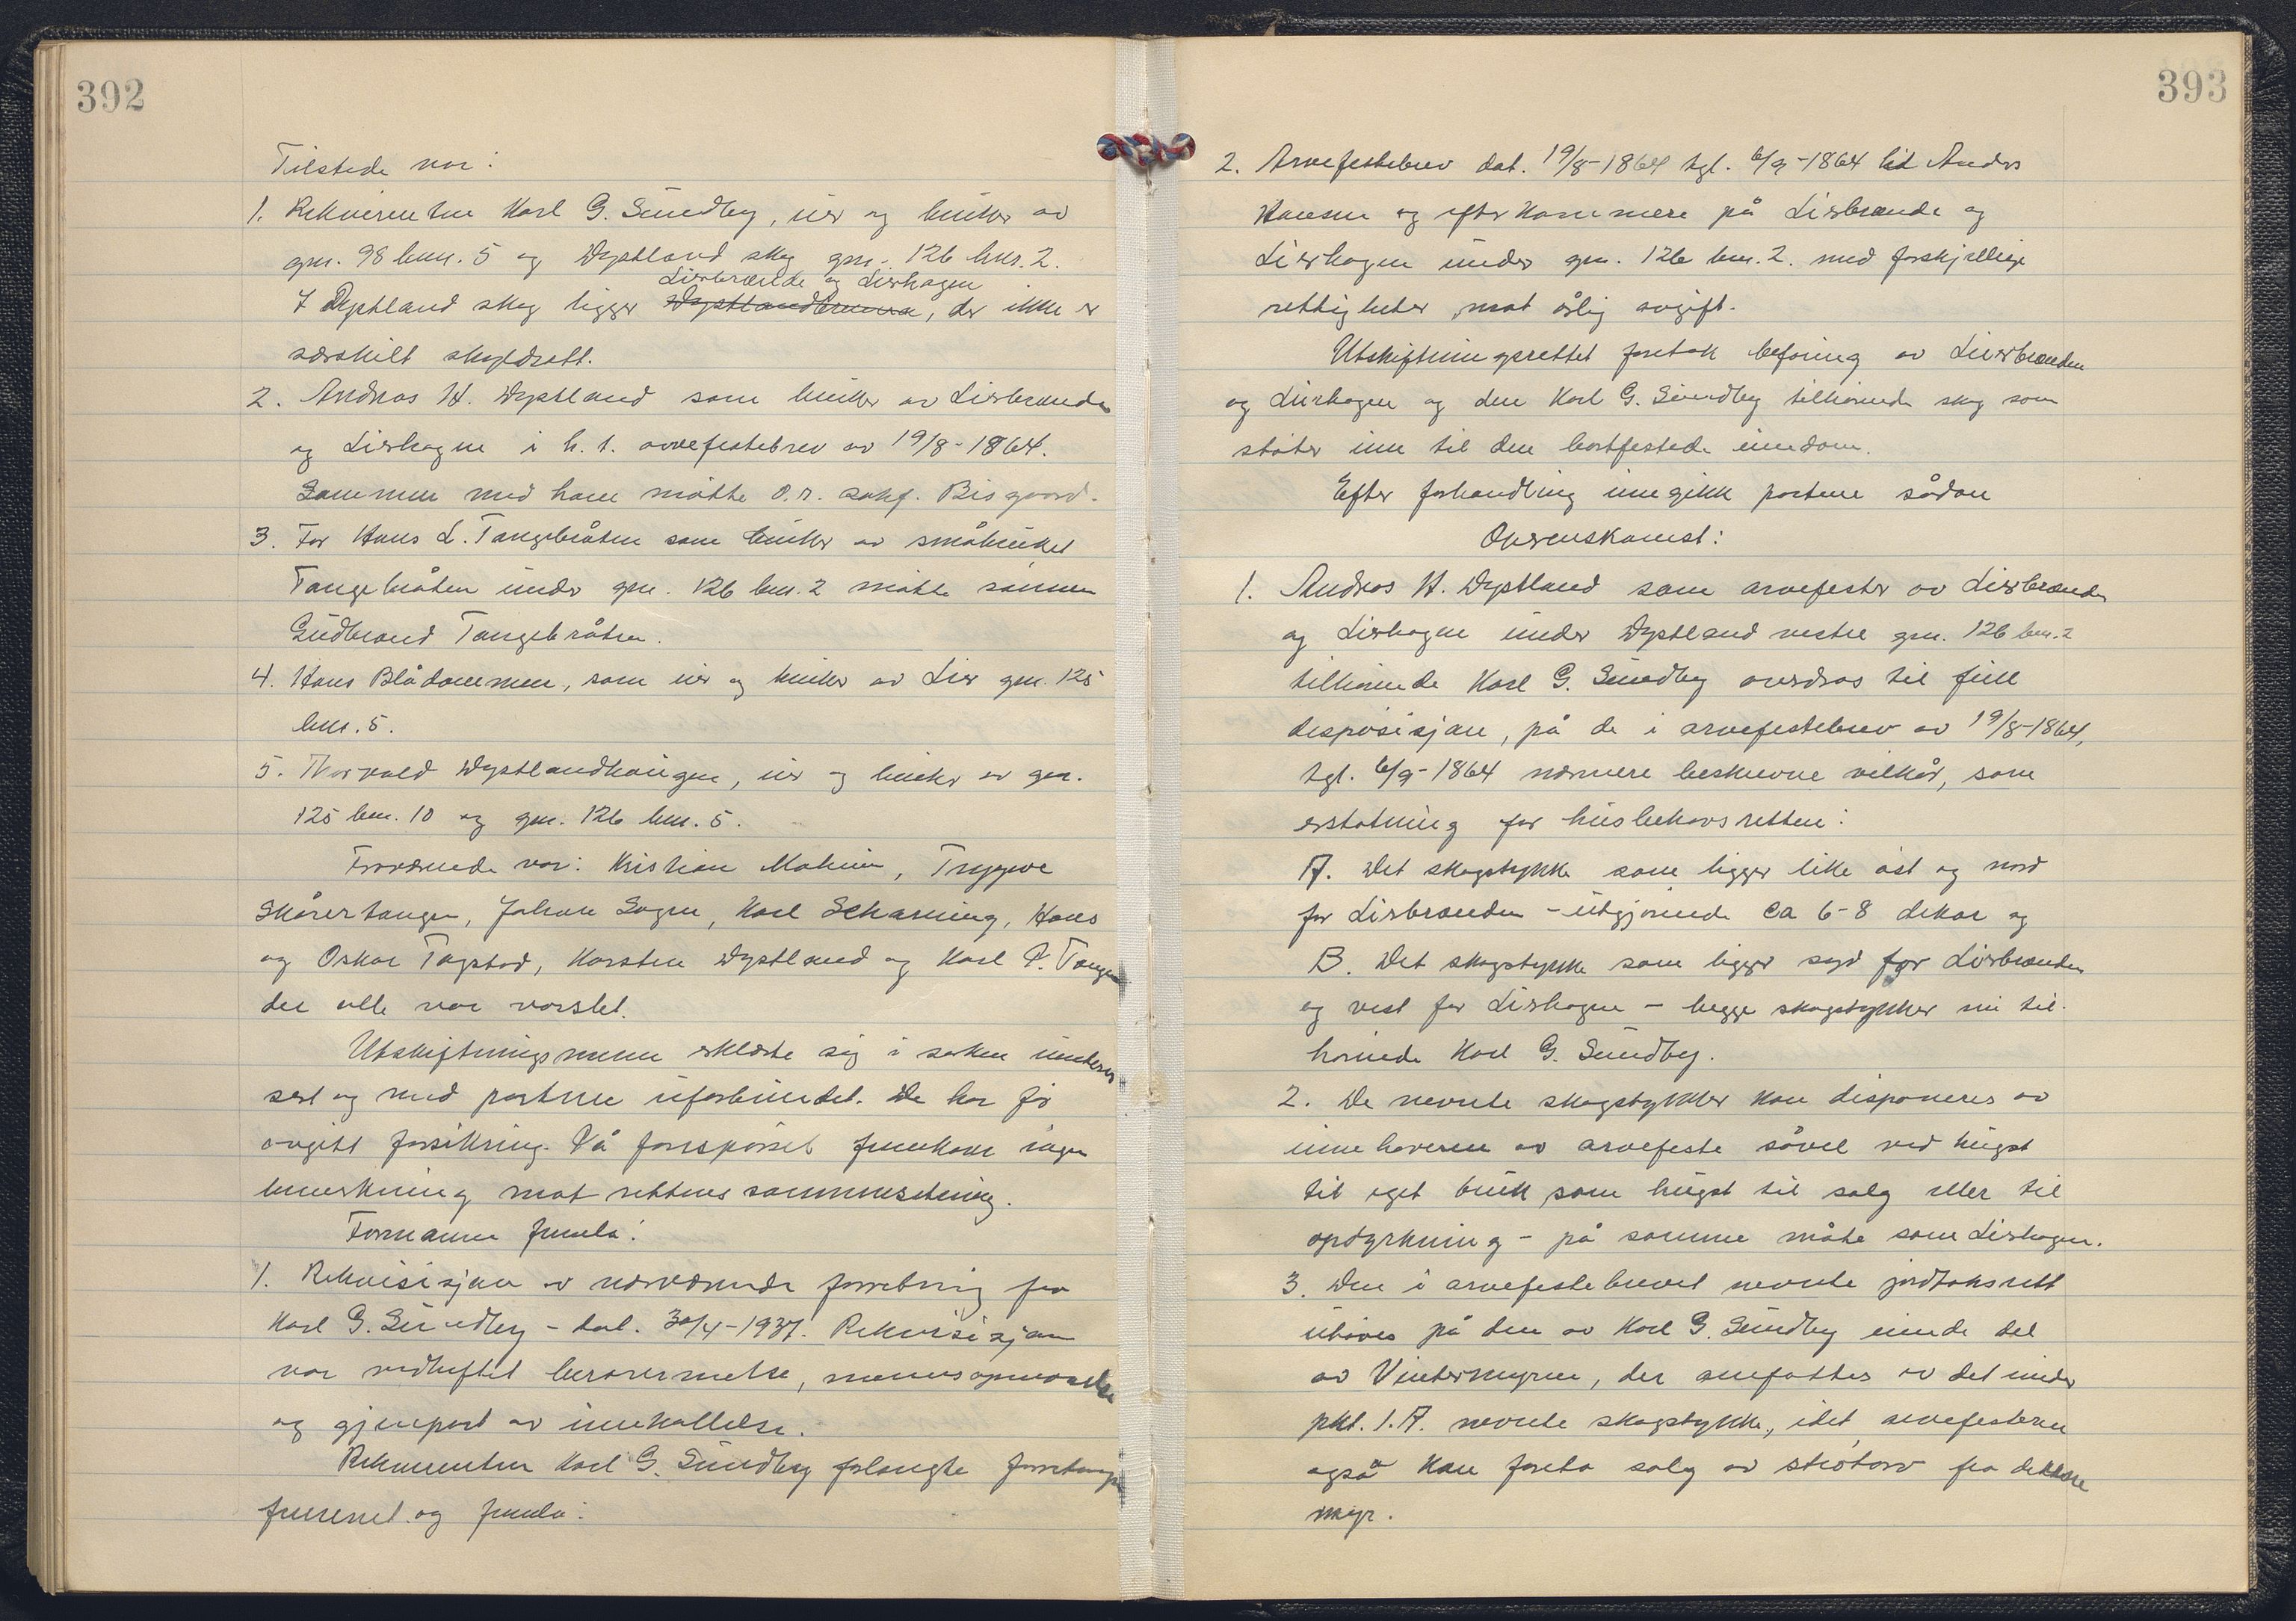 392
Tilstede var:
1. Rekvirenten Karl G. Sundby, eier og bruker av
gnr. 98 bnr. 5 og Dystland skog gnr. 126 bnr. 2.
Lierbrænde og Lierhagen
I Dystland skog ligger Dystlandbrenna, der ikke er
særskilt skyldsatt.
2. Andreas H. Dystland som bruker av Lierbrænden
og Lierhagen i h. t. arvefestebrev av 19/8-1864.
Sammen med ham møtte o.r. sakf. Bisgaard.
3. For Hans L. Tangebråten som bruker av småbruket
Tangebråten under gnr. 126 bnr. 2 møtte sønnen
Gudbrand Tangebråten.
4. Hans Blådammen, som eier og bruker av Lier gnr. 125
bnr. 5.
5. Thorvald Dystlandhaugen, eier og bruker av gnr.
125 bnr. 10 og gnr. 126 bnr. 5.
Fraværende var: Kristian Moheim, Tryggve
Skårertangen, Johan Sagen, Karl Scharning, Hans
og Oskar Tagstad, Karsten Dystland og Karl P. Tangen
der alle var varslet.
Utskiftningsmenn erklærte sig i saken uinteres
sert og med partene uforbundet. De har før
avgitt forsikring. På forespørsel fremkom ingen
bemerkning mot rettens sammensetning.
Formannen fremla:
1. Rekvisisjon av nærværende forretning fra
Karl G. Sundby - dat. 30/4-1937. Rekvisisjonen
var vedheftet berammelse, mannsopnevnelse
og gjenpart av innkallelse.
Rekvirenten Karl G. Sundby forlangte forretningen
fremmet og fremla:
393
2. Arvefestebrev dat. 19/8-1864 tgl. 6/9-1864 til Anders
Hansen og efterkommere på Lierbrænde og
Lierhagen under gnr. 126 bnr. 2. med forskjellige
rettigheter mot årlig avgift.
Utskiftningsrettet foretok befaring av Lierbrænden
og Lierhagen og den Karl G. Sundby tilhørende skog som
støter inn til den bortfestede eiendom.
Efter forhandling inngikk partene sådan
Overenskomst:
1. Andreas H. Dystland som arvefester av Lierbrænden
og Lierhagen under Dystland vestre gnr. 126 bnr. 2
tilhørende Karl G. Sundby overdras til full
disposisjon, på de i arvefestebrev av 19/8-1864,
tgl. 6/9-1864 nærmere beskrevne vilkår, som
erstatning for husbehovsretten:
A. Det skogstykke som ligger like øst og nord
for Lierbrænden - utgjørende ca 6-8 dekar og
B. Det skogstykke som ligger syd for Lierbrænden
og vest for Lierhagen - begge skogstykker nu til-
hørende Karl G. Sundby.
2. De nevnte skogstykker kan disponeres av
innehaveren av arvefeste såvel ved hugst
til eget bruk som hugst til salg eller til
opdyrkning - på samme måte som Lierhagen.
3. Den i arvefestebrevet nevnte jordtaksrett
utøves på den av Karl G. Sundby eiende del
av Vintermyren, der omfattes av det under
pkt. 1. A. nevnte skogstykke, idet arvefesteren
også kan foreta salg av strøtorv fra denne
myr.